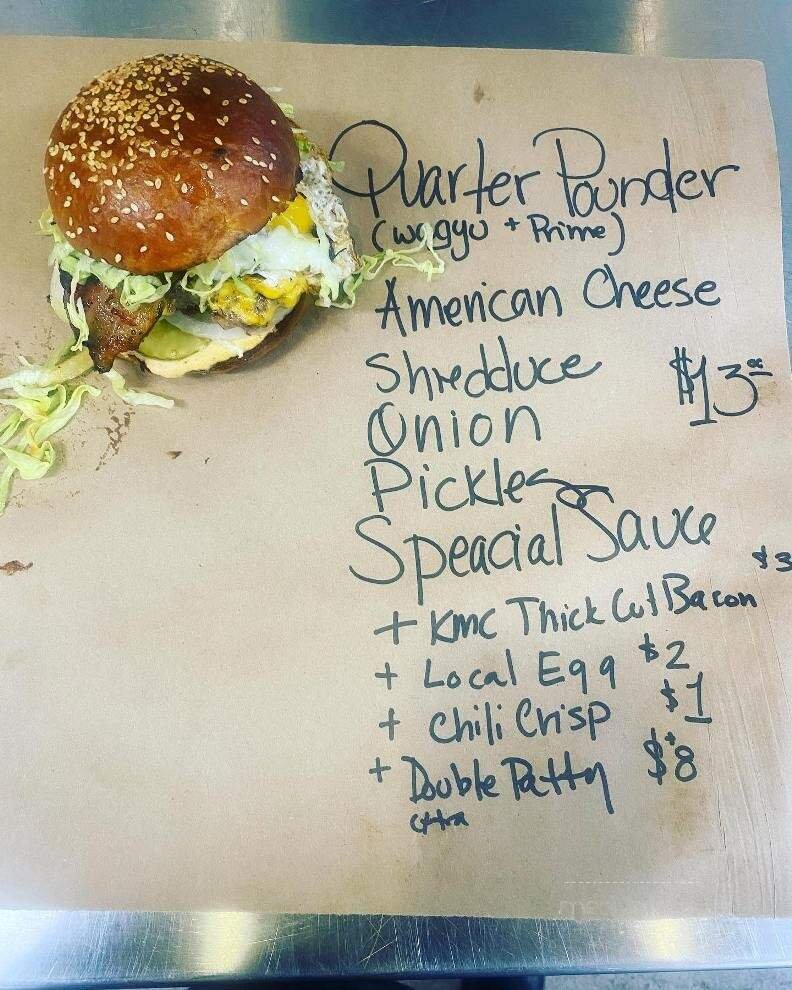 Quarter Pounder
(wagyu + Prime)
American Cheese
Shredduce $13.00
Onion
Pickles
Speacial Sauce
+ KMC Thick Cut Bacon $3
+ Local Egg $2
+ Chili Crisp $1
+ Double Patty $8